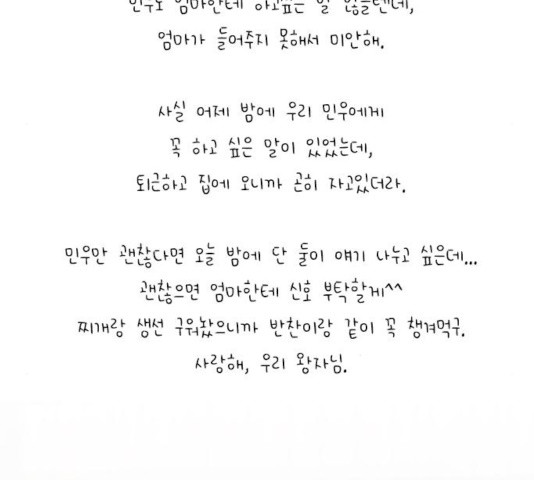 민우도 엄마한테 하고싶은 말 많을텐데,
엄마가 들어주지 못해서 미안해.
사실 어제 밤에 우리 민우에게
꼭 하고 싶은 말이 있었는데,
퇴근하고 집에 오니까 곤히 자고있더라.
민우만 괜찮다면 오늘 밤에 단 둘이 얘기 나누고 싶은데...
괜찮으면 엄마한테 신호 부탁할게^^
찌개랑 생선 구워놨으니까 반찬이랑 같이 꼭 챙겨먹구.
사랑해, 우리 왕자님.